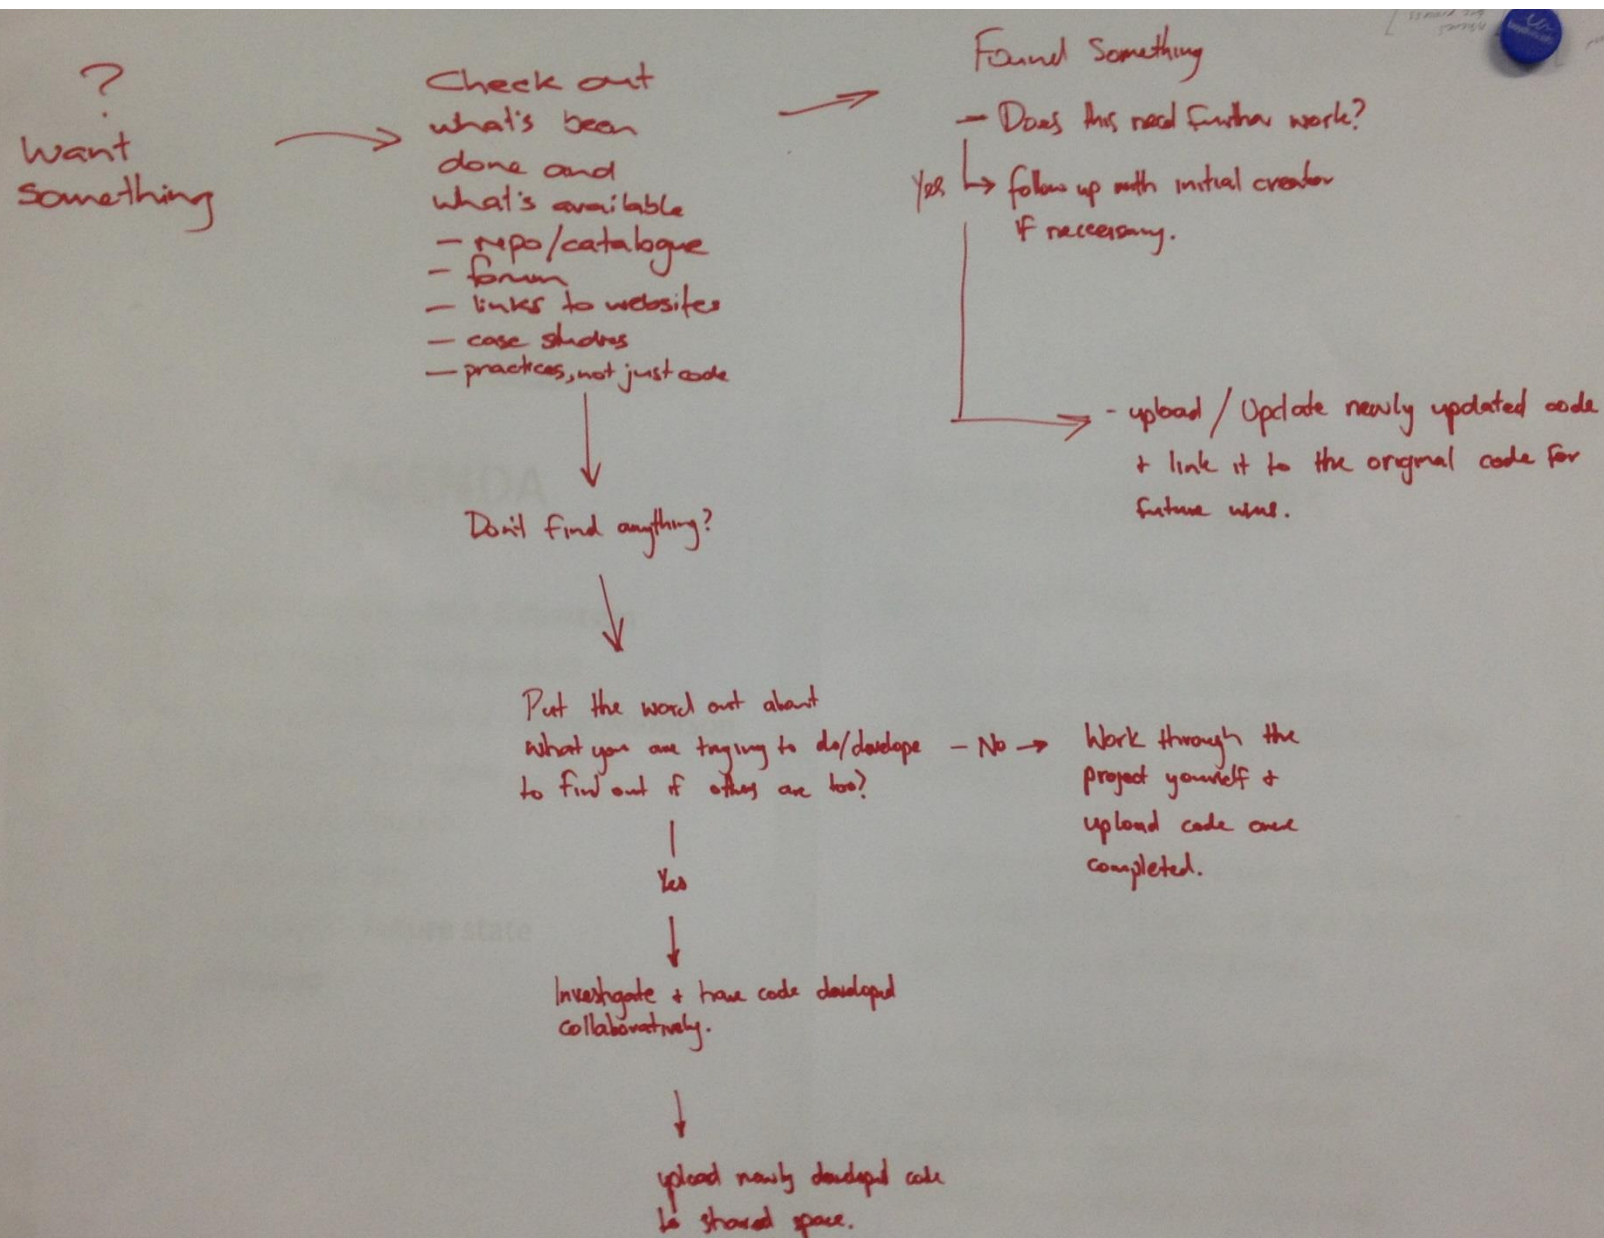 ?
Want
something
Check out
what's been
done and
what's available
- repo/catalogue
- forum
- links to websites
- case studies
- practices, not just code
Found something
- Does this need further work?
Yes
follow up with initial creator
if neccessary.
- upload / Update newly updated code
+ link it to the original code for
future
Don't find anything?
Put the word out about
what you are trying to do/develope
to find out if others are too?
- No →
Work through the
project yourself +
upload code once
completed.
Yes
Investigate + have code developed
collaboratively.
upload newly developed code
to shared space.
AGENDA
state